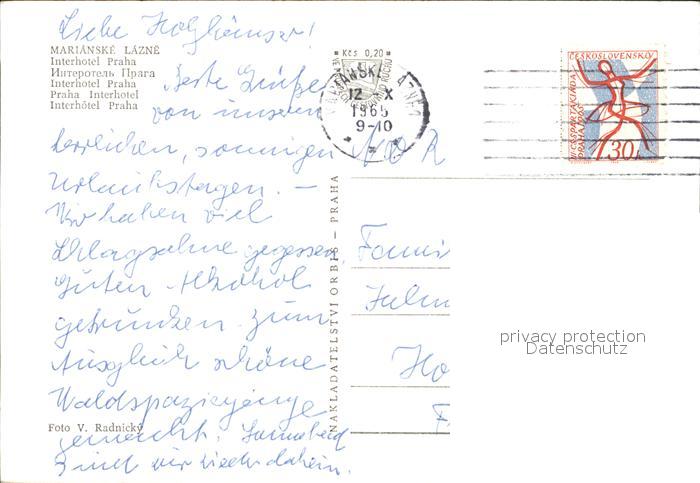 Liebe Holzhäuser!
MARIÁNSKÉ LÁZNĚ
Interhotel Praha
Интеротель Прага
Interhotel Praha
Praha Interhotel
Interhôtel Praha
Beste Grüße
von unseren
herrlichen, sonnigen
Urlaubstagen. –
Wir haben viel
Schlagsahne gegessen,
guten Alkohol
getrunken zum
Ausgleich schöne
Waldspaziergänge
gemacht. Sonnabend
sind wir wieder daheim.
Foto V. Radnický
Kčs 0,20
12 X
1965
9-10
ČESKOSLOVENSKO
PRAHA 1965
30h
NAKLADATELSTVÍ ORBIS – PRAHA
Fami
Ho
privacy protection
Datenschutz